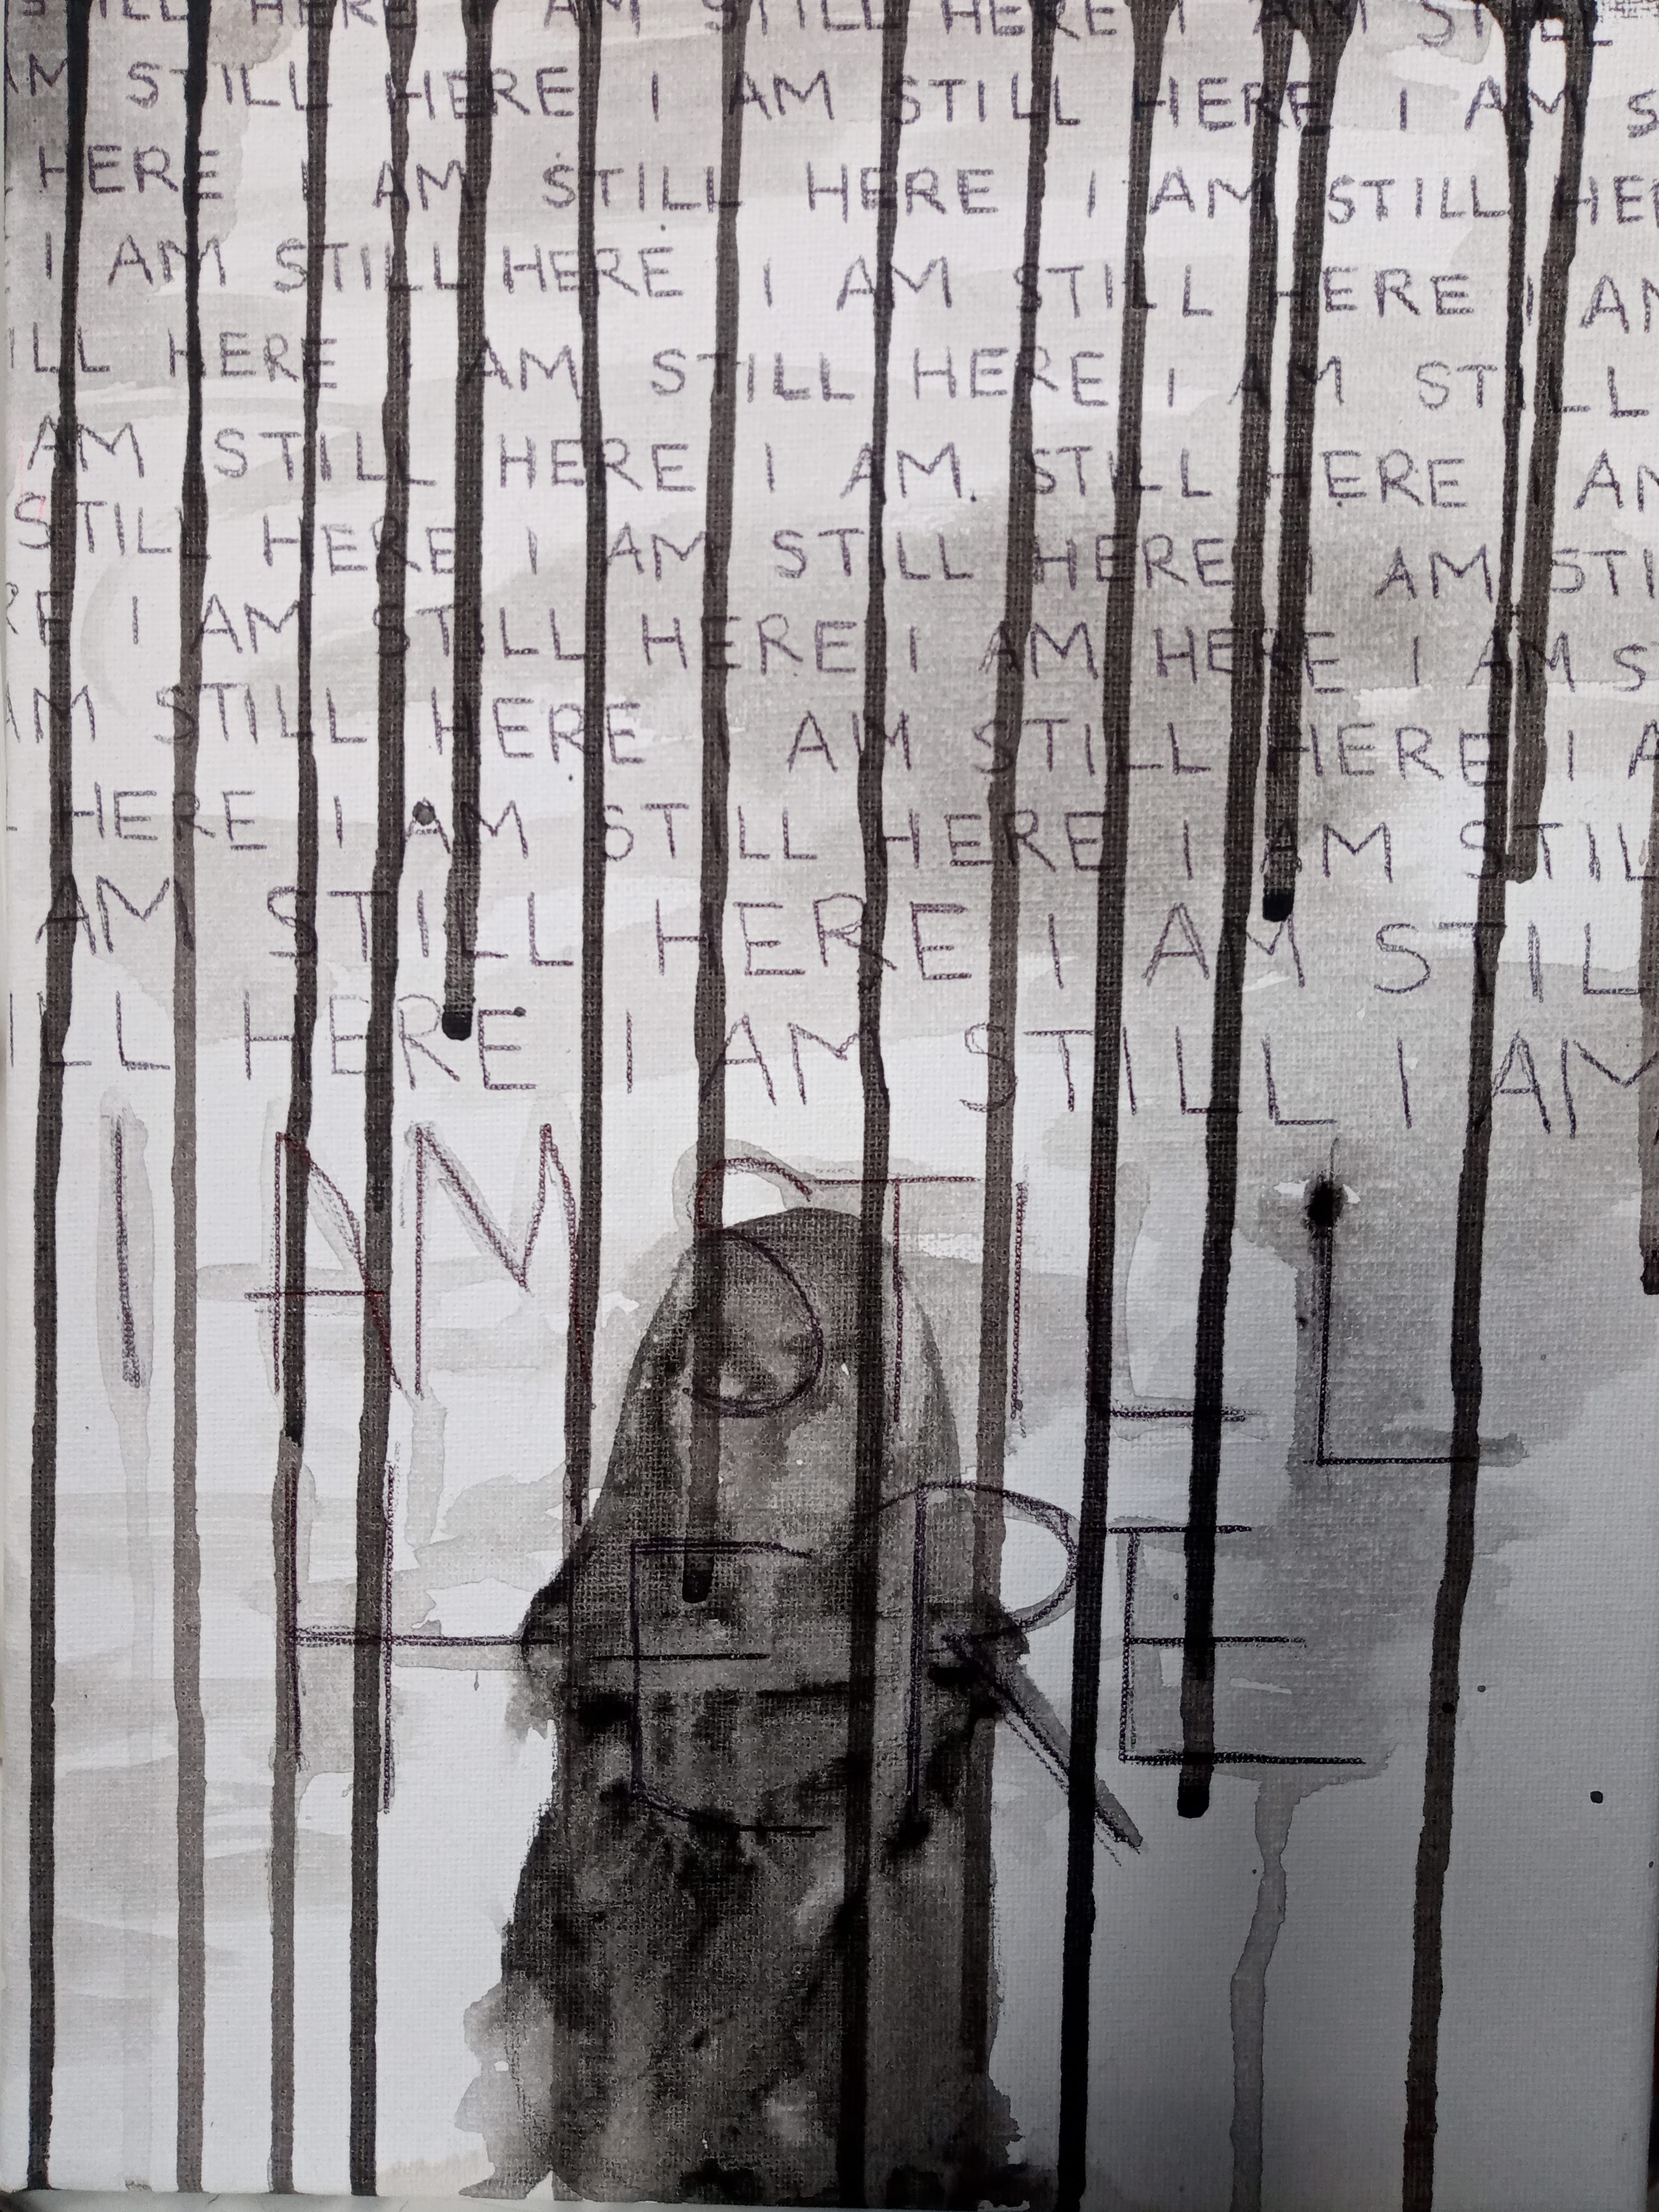 STILL HERE I AM STILL HERE I AM STILL
AM STILL HERE I AM STILL HERE I AM S
HERE I AM STILL HERE I AM STILL HE
I AM STILL HERE I AM STILL HERE I AM
ILL HERE I AM STILL HERE I AM STILL
AM STILL HERE I AM STILL HERE AM
STILL HERE I AM STILL HERE I AM STI
RE I AM STILL HERE I AM HERE I AM S
AM STILL HERE AM STILL HERE I A
L HERE I AM STILL HERE I AM STIL
AM STILL HERE I AM STIL
ILL HERE I AM STILL I AM
I AM STILL
HERE